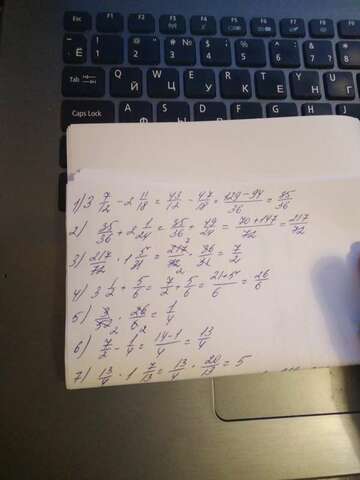 Esc F1 F2 F3 F4 F5 F6
Ё ! 1 " 2 № 3 ; 4 % 5 : 6 ? 7
Tab Q Й W Ц E У R К T Е Y Н
Caps Lock
1) 3 7/12 - 2 11/18 = 43/12 - 47/18 = 129-94/36 = 35/36
2) 35/36 + 2 1/24 = 35/36 + 49/24 = 70+147/72 = 217/72
3) 217/72 · 1 5/31 = 217/72 · 36/31 = 7/2
4) 3 1/2 + 5/6 = 7/2 + 5/6 = 21+5/6 = 26/6
5) 3/52 · 26/6 = 1/4
6) 7/2 - 1/4 = 14-1/4 = 13/4
7) 13/4 · 1 7/13 = 13/4 · 20/13 = 5